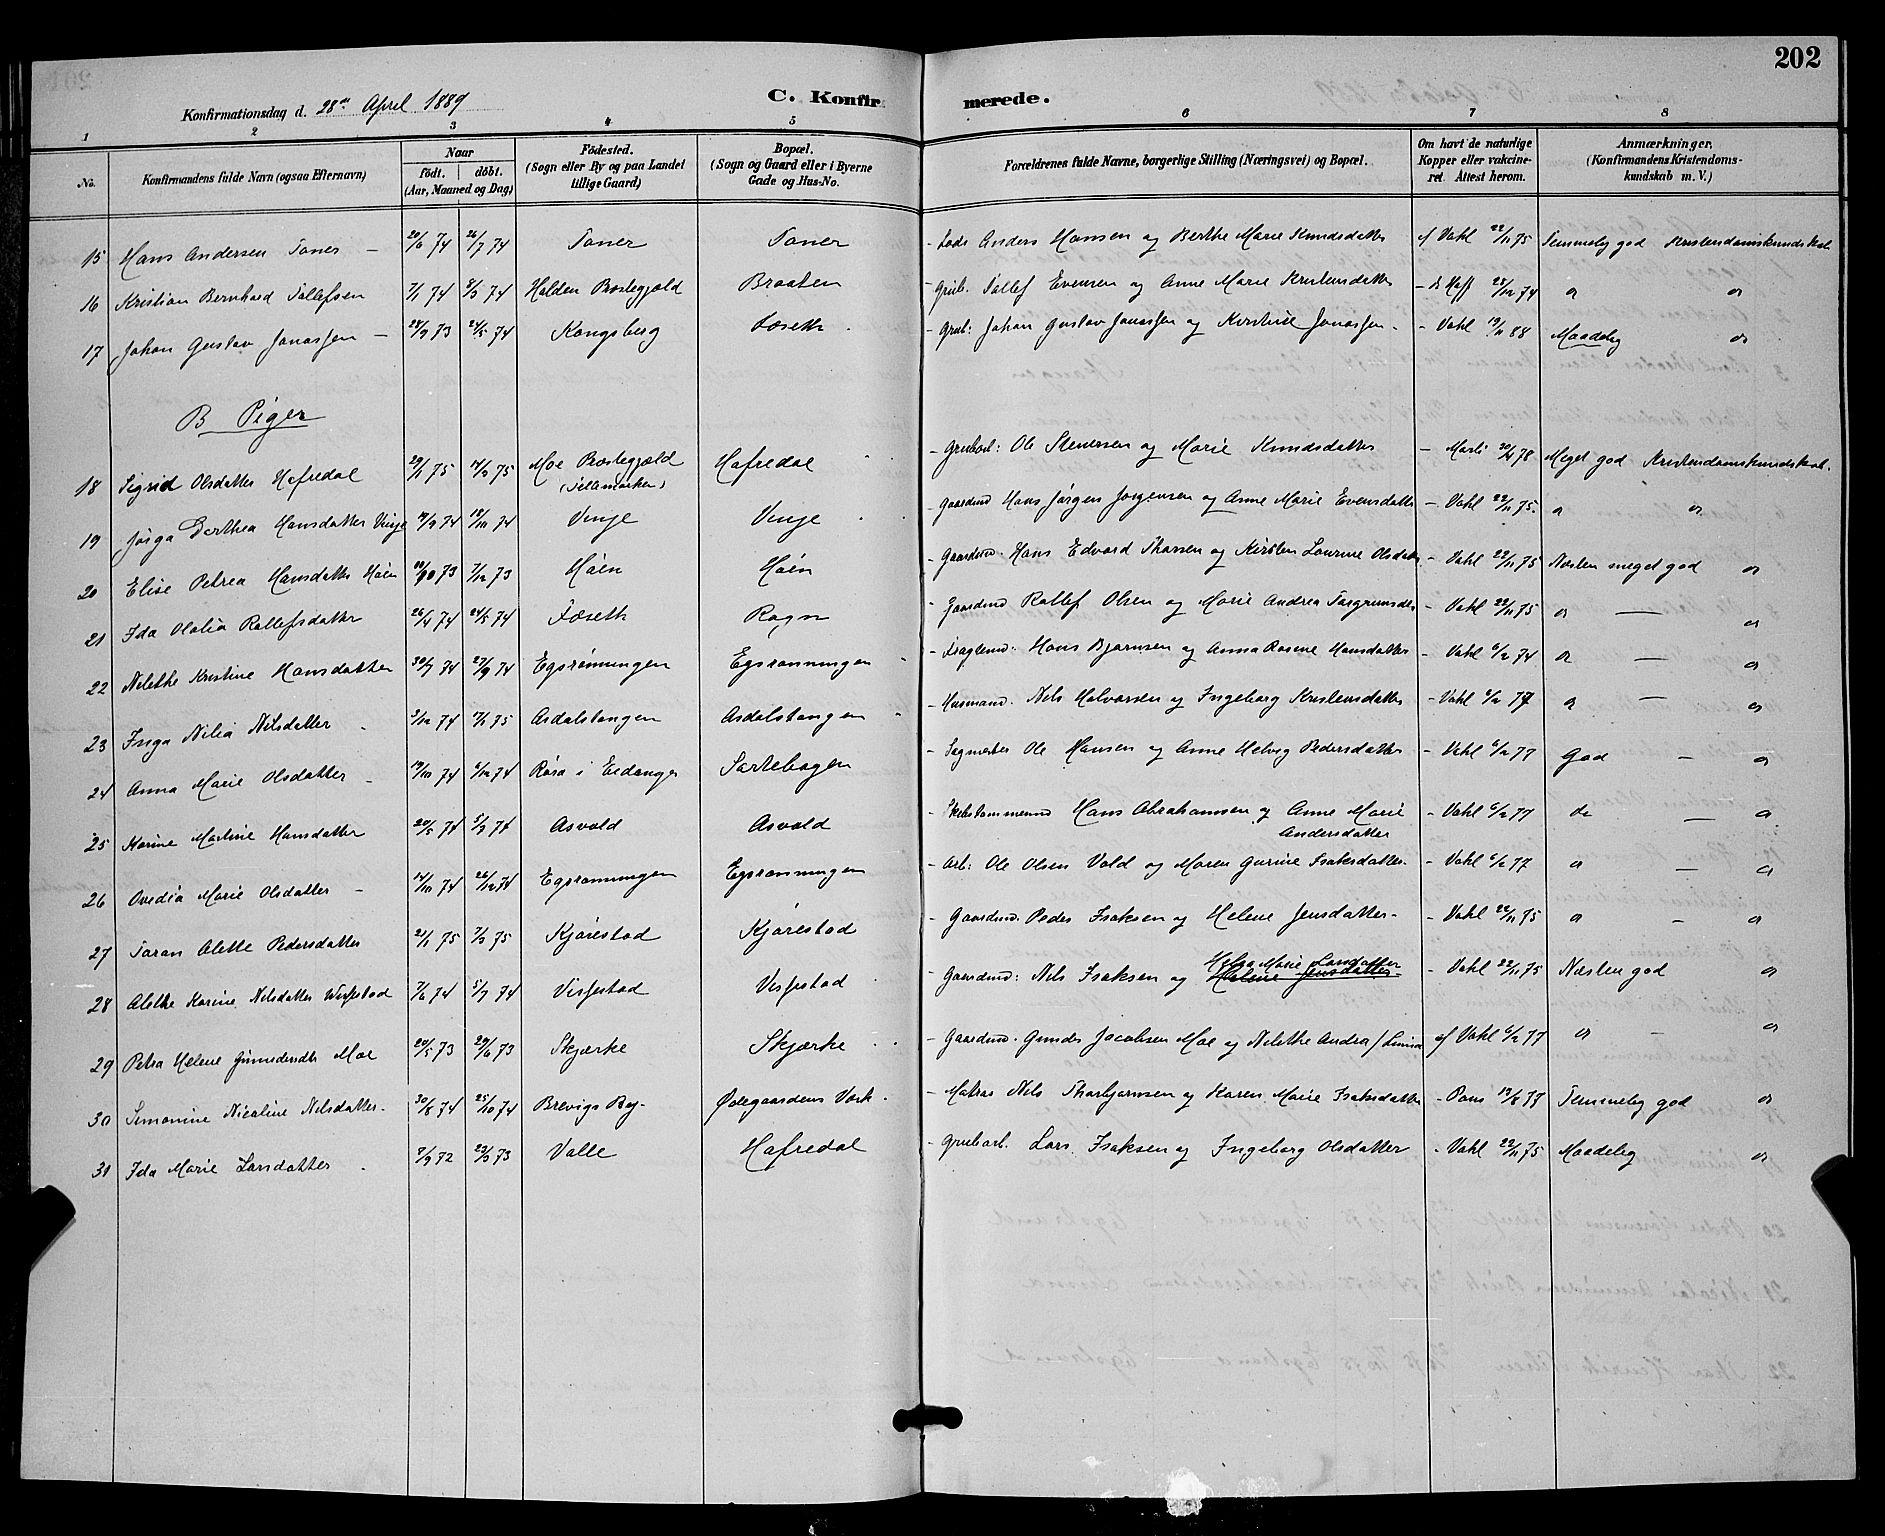 202
Konfirmationsdag d. 28de April 1889
C. Konfirmerede.
1 2 3 4 5 6 7 8
No.
Konfirmandens fulde Navn (ogsaa Efternavn)
Naar
födt. döbt.
(Aar, Maaned og Dag)
Födested.
(Sogn eller By og paa Landet
tillige Gaard)
Bopæl.
(Sogn og Gaard eller i Byerne
Gade og Hus-No.
Forældrenes fulde Navne, borgerlige Stilling (Næringsvei) og Bopæl.
Om havt de naturlige
Kopper eller vakcine-
ret. Attest herom.
Anmærkninger,
(Konfirmandens Kristendoms-
kundskab m. V.)
15 Hans Andersen Toner – 20/6 74 26/7 74 Toner Toner Anders Hansen og Berthe Marie Knudsdatter af Vahl 22/11 75 Temmelig god Kristendomskundskab
16 Kristian Bernhard Tollefsen 7/1 74 8/3 74 Holden Præstegjæld Braaten Grub. Tollef Evensen og Anne Marie Kristensdatter 74
17 Johan Gustav Jonassen – 28/9 73 24/5 74 Kongsberg Foseth Grub: Johan Gustav Jonassen og Kristine Jonassen – Vahl 19/11 88 Maadelig
B Piger
18 Sigrid Olsdatter Hafredal 29/1 75 14/3 75 Moe Præstegjæld (Telemarken) Hafredal Grubarb: Ole Stenersen og Marie Knudsdatter – 78 Meget god Kristendomskundskab.
19 Dorthea Hansdatter Vinje 74 74 Vinje Vinje Gaardmd Hans Jørgen Jørgensen og Anne Marie Evensdatter – Vahl 22/11 75.
20 Elise Petrea Hansdatter Høen 73 7/12 73 Høen Høen Gaardmd. Hans Edvard Thorsen og Kirsten Lovrine Olsdatter – Vahl 22/11 75 Næsten meget god
21 Ida Olalia Rollefsdatter 26/4 74 24/5 74 Foseth Rogn Gaardmd Rollef Olsen og Marie Andrea – Vahl 22/11 75
22 Nilethe Kristine Hansdatter 30/7 74 27/9 74 Egsrønningen Egsrønningen Hans Bjørnsen og Anna Rosine Hansdatter – Vahl 6/2 74
23 Inga Nilia Nilsdatter 3/12 74 17/1 75 Asdalstangen Asdalstangen Husmand. Nils Halvorsen og Ingeborg Kristensdatter – Vahl 6/2 77
24 Anna Marie Olsdatter – 19/10 74 6/12 74 Røra i Eidanger Sartebogen Ole Hansen og Anne Helvig Pedersdatter – Vahl 6/2 77 God –
25 Karine Martine Hansdatter 20/5 74 5/7 74 Asvold Asvold Hans Abrahamsen og Anne Marie
Andersdatter – Vahl 6/2 77 do –
26 Ovedia Marie Olsdatter – 14/10 74 26/12 74 Egsrønningen Egsrønningen Arb: Ole Olsen Vold og Maren Gurine Isaksdatter – Vahl 6/2 77 –
27 Taran Alette Pedersdatter 21/1 75 7/3 75 Kjørestad Kjørestad Gaardmd. Peder Isaksen og Helene Jensdatter – Vahl 22/11 75 –
28 Alethe Karine Nilsdatter Visstad 7/6 74 5/7 74 Visstad Visstad Gaardmd: Nils Isaksen og Helga Marie Larsdatter
Helene Jensdatter – Vahl 22/11 75 Næsten god
29 Petra Helene Moe 20/5 73 29/6 73 Skjærke Skjærke Gaardmd. Gunder Jacobsen Moe og Nilethe Andrea af Vahl 6/2 77 –
30 Simonine Nicoline Nilsdatter. 30/8 74 25/10 74 Brevigs By Ødegaardens Værk Matros Nils Thorbjørnsen og Karen Marie Isaksdatter 77 Temmelig god
31 Ida Marie Larsdatter 7/9 72 23/3 73 Valle Hafredal Grubarb. Lars Isaksen og Ingeborg Olsdatter – Vahl 22/11 75 Maadelig